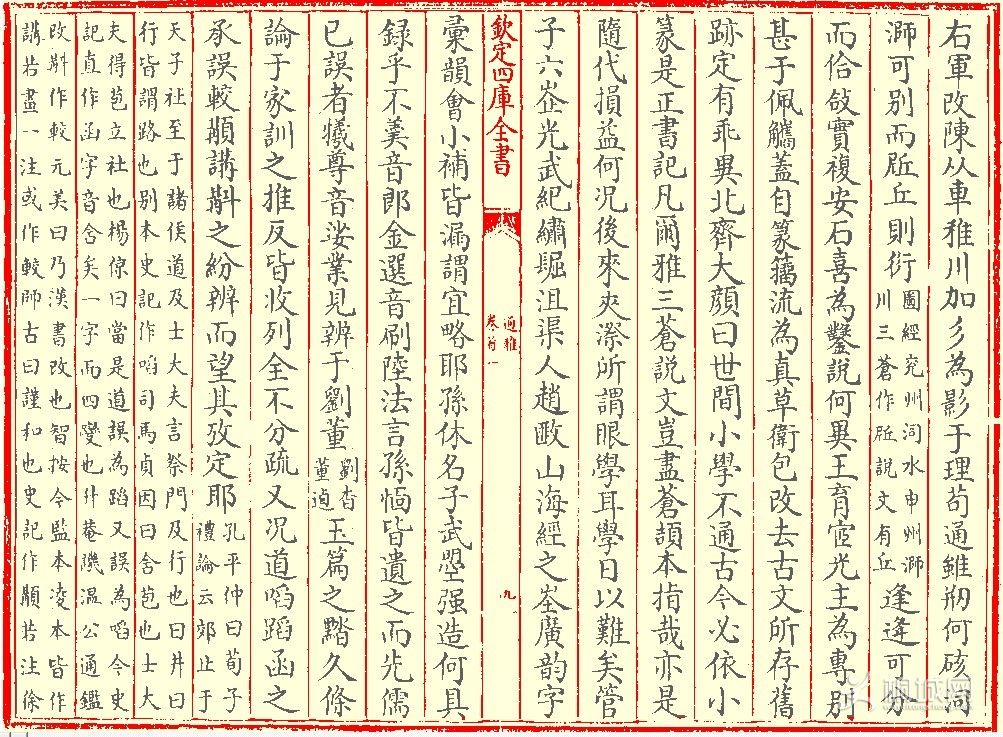 右軍改陳从車稚川加彡為影于理苟通雖刱何硋洞
㴲可别而𨸏丘則衍圖經兖州洞水申州㴲川三蒼作𨸏説文有丘逢逄可分
而佮敆實複安石喜為鑿説何異王育宦光主為專别
甚于佩觿蓋自篆籀流為真草衛包改去古文所存舊
跡定有乖異北齊大顔曰世間小學不通古今必依小
篆是正書記凡爾雅三蒼説文豈盡蒼頡本指哉亦是
隨代損益何況後來夾漈所謂眼學耳學日以難矣管
子六峜光武紀繡䘿沮渠人趙𢾭山海經之峚廣韵字
欽定四庫全書
通雅
卷首一
九
彙韻會小補皆漏謂宜略耶孫休名子武曌强造何具
録乎不羮音郎金選音刷陸法言孫愐皆遺之而先儒
已誤者犧尊音娑業見辨于劉董劉杳董逌玉篇之䵬久條
論于家訓之推反皆收列全不分疏又况道啗蹈函之
承誤較顜講斠之紛辨而望其攷定耶孔平仲曰荀子禮論云郊止于
天子社至于諸侯道及士大夫言祭門及行也曰井曰
行皆謂路也别本史記作啗司馬貞因曰含苞也士大
夫得苞立社也楊倞曰當是道誤為蹈又誤為啗今史
記直作函字音含矣一字而四變也升菴譏温公通鑑
改斠作較元美曰乃漢書改也智按今監本凌本皆作
講若畫一注或作較師古曰謹和也史記作顜若注徐